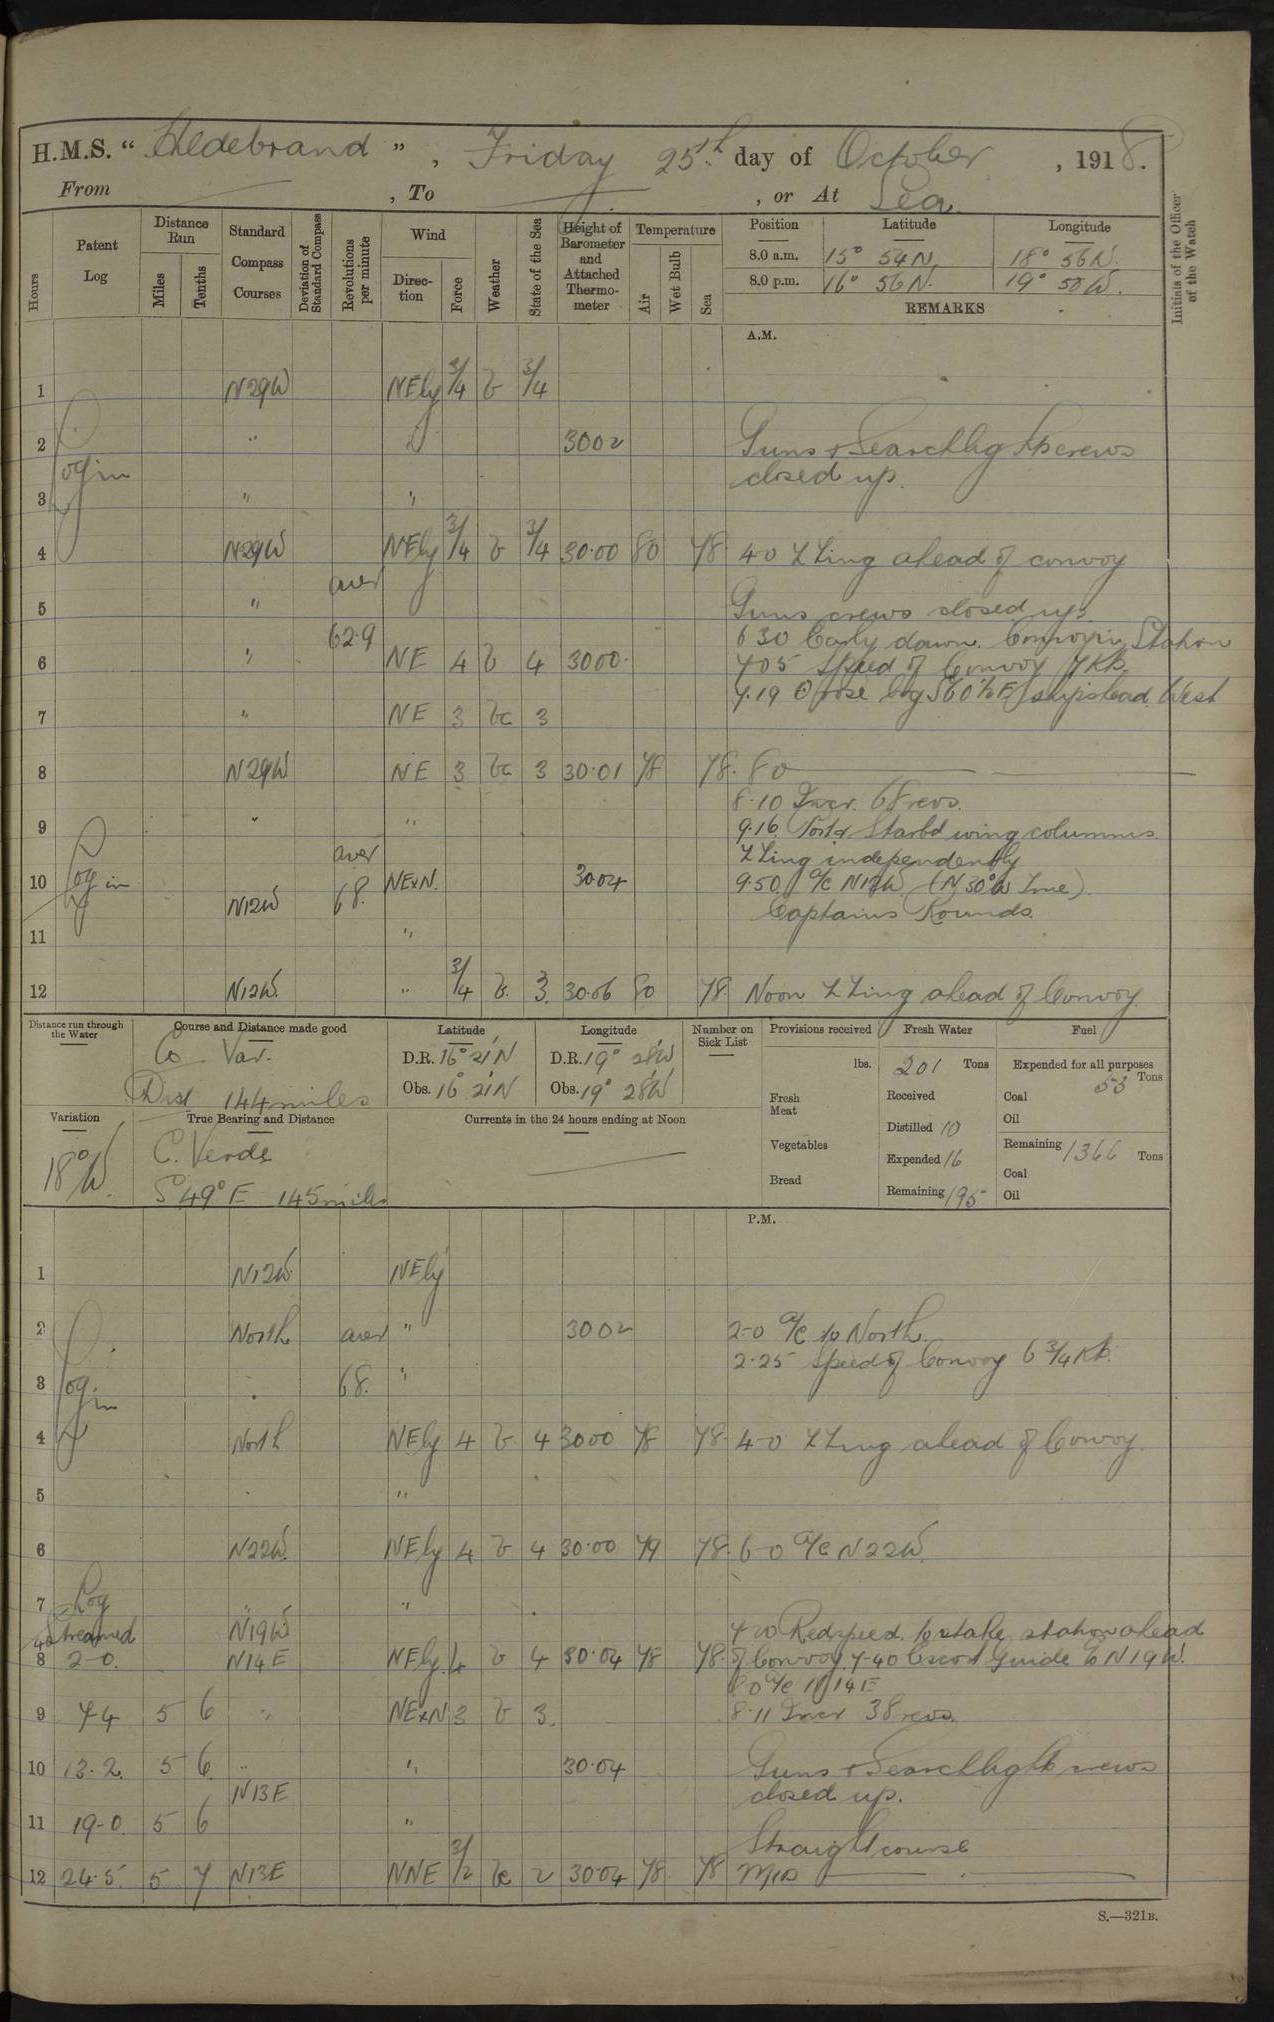 H.M.S. " Hildebrand " , Friday 25th day of October , 1918.
From , To , or At Sea.
Hours
Patent Log
Distance Run
Miles
Tenths
Standard Compass Courses
Deviation of Standard Compass
Revolutions per minute
Wind
Direction
Force
Weather
State of the Sea
Height of Barometer and Attached Thermometer
Temperature
Air
Wet Bulb
Sea
Position Latitude Longitude
8.0 a.m. 15° 54 N. 18° 56 W.
8.0 p.m. 16° 56 N. 19° 50 W.
REMARKS
Initials of the Officer of the Watch
A.M.
1 N29W NEly 3/4 b 3/4
2 " " 3002 Guns & Searchlights crews
Log in closed up.
3 " "
4 N29W NEly 3/4 b 3/4 30.00 80 78. 4-0 ZZing ahead of convoy
aver
5 " Guns crews closed up.
62.9 6 30 Early dawn. Convoy in Station
6 " NE 4 b 4 3000. 705 Speed of Convoy 7 Kts.
7.19 rose brg S60½E ships head West
7 " NE 3 bc 3
8 N29W NE 3 bc 3 30.01 78 78. 80
8.10 Incr. 68 revs.
9 " " 9.16 Port & Starbd wing columns
aver ZZing independently
10 Log in NExN. 3004 9.50 a/c N12W (N30°W True).
N12W 68. Captains Rounds.
11 "
12 N12W. " 3/4 b. 3. 30.06 80 78 Noon ZZing ahead of Convoy.
Distance run through the Water
Course and Distance made good
Co. Var.
Dist 144 miles
Latitude
D.R. 16° 21'N
Obs. 16° 21'N
Longitude
D.R. 19° 28'W
Obs. 19° 28'W
Number on Sick List
Provisions received
lbs.
Fresh Meat
Vegetables
Bread
Fresh Water
201 Tons
Received
Distilled 10
Expended 16
Remaining 195
Fuel
Expended for all purposes
53 Tons
Coal
Oil
Remaining 1366 Tons
Coal
Oil
Variation
18°W.
True Bearing and Distance
C. Verde
S 49° E 145 miles
Currents in the 24 hours ending at Noon
P.M.
1 N12W. NEly
2 North aver " 3002 2-0 a/c to North.
2.25 Speed of Convoy 6 3/4 Kts.
3 Log in 68. "
4 North NEly 4 b 4 3000 78 78. 4-0 ZZing ahead of Convoy.
5 "
6 N22W. NEly 4 b 4 30.00 79 78. 6-0 a/c N22W.
7 Log " "
Streamed N19W 7 20 Red speed. to take station ahead
8 2-0. N14E NEly. 4 b 4 30.04 78 78. of Convoy. 7-40 Escort Guide to N19W.
8 0 a/c N14E
9 7.4 5 6 " NExN 3 b 3. 8.11 Incr 38 revs.
10 13.2. 5 6 " " 30.04 Guns & Searchlights crews
N13E closed up.
11 19-0 5 6 "
Straight course
12 24.5. 5 7 N13E NNE 3/2 bc 2 30.04 78 78 Mid
S.—321B.